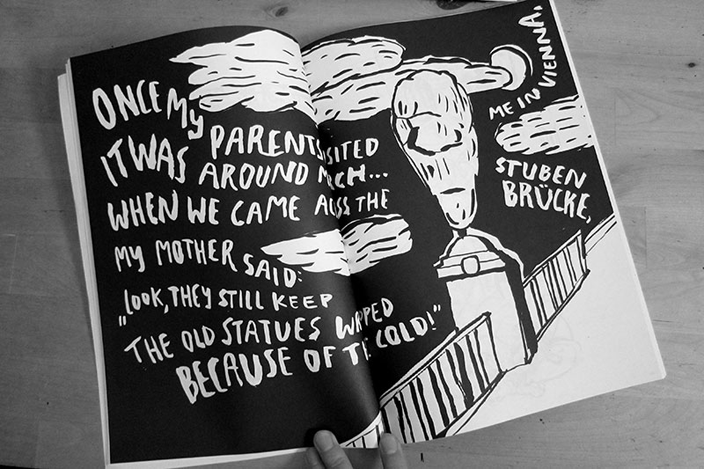 ONCE MY PARENTS VISITED ME IN VIENNA,
IT WAS AROUND MARCH...
WHEN WE CAME ACROSS THE STUBEN
BRÜCKE,
MY MOTHER SAID:
"LOOK, THEY STILL KEEP
THE OLD STATUES WRAPPED
BECAUSE OF THE COLD!"